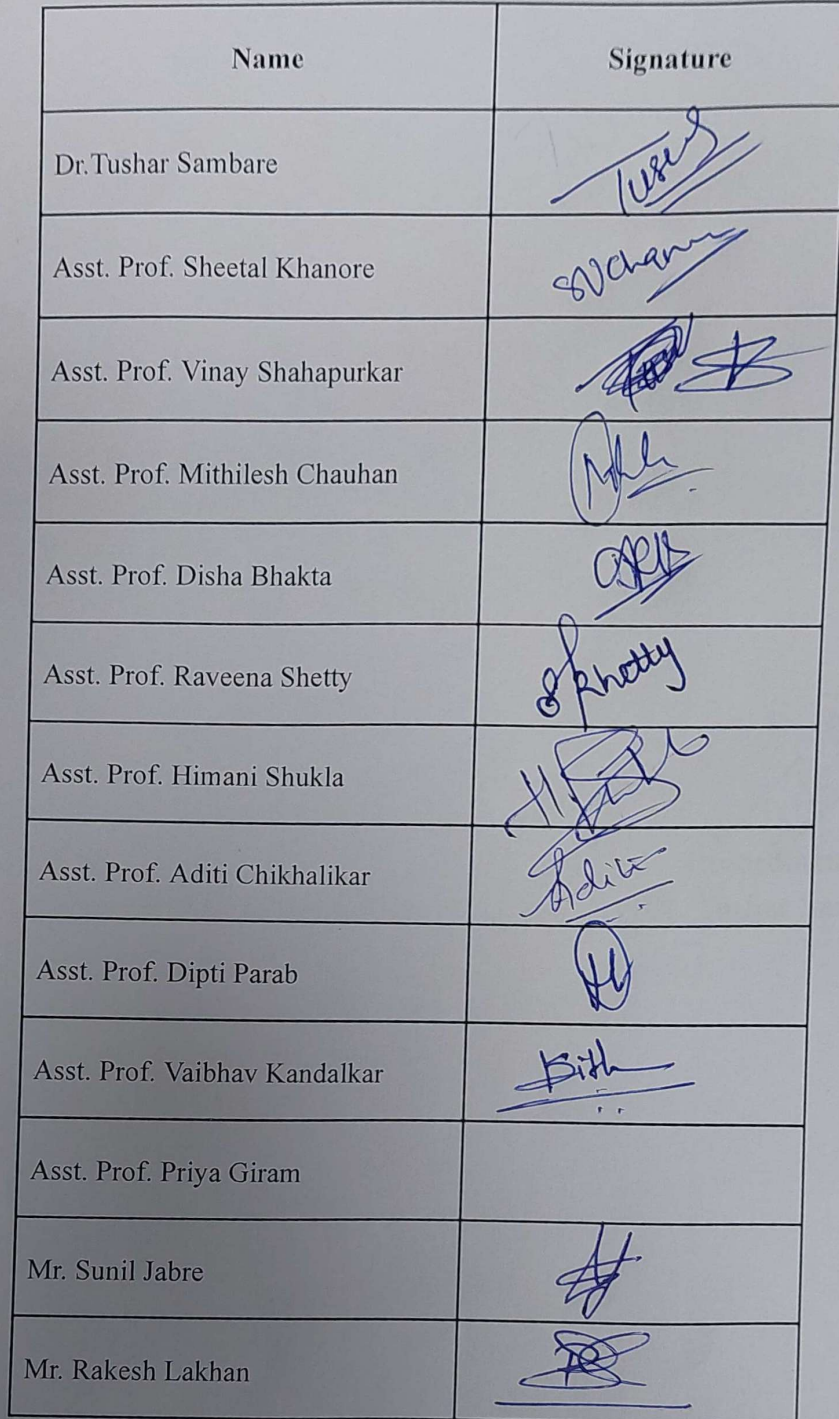 Name Signature
Dr.Tushar Sambare
Asst. Prof. Sheetal Khanore
Asst. Prof. Vinay Shahapurkar
Asst. Prof. Mithilesh Chauhan
Asst. Prof. Disha Bhakta
Asst. Prof. Raveena Shetty
Asst. Prof. Himani Shukla
Asst. Prof. Aditi Chikhalikar
Asst. Prof. Dipti Parab
Asst. Prof. Vaibhav Kandalkar
Asst. Prof. Priya Giram
Mr. Sunil Jabre
Mr. Rakesh Lakhan